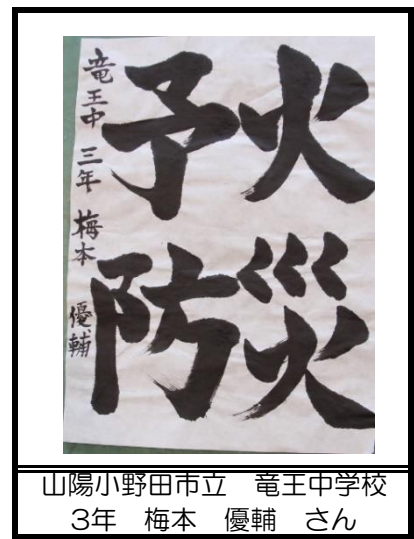 火災
予防
竜王中 三年 梅本 優輔
山陽小野田市立 竜王中学校
3年 梅本 優輔 さん